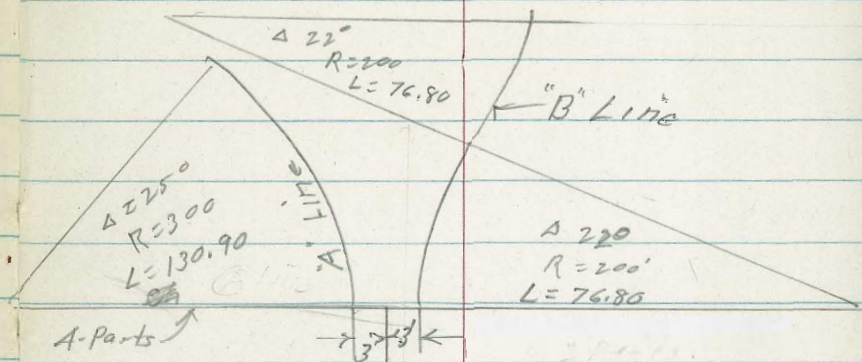 Δ 22°
R=200
L=76.80
"B" Line
Δ=25°
R=300
L=130.90
"A" Line
Δ 22°
R=200'
L=76.80
A-Parts
3' 3'